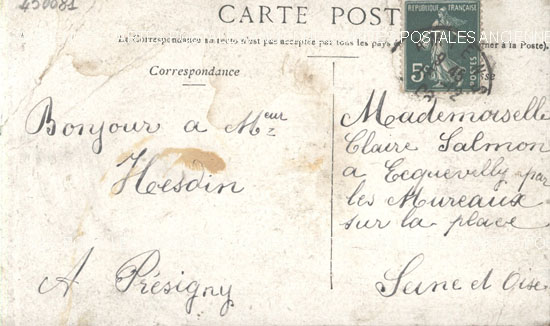 450081
CARTE POST
La Correspondance au recto n'est pas acceptée par tous les pays
à la Poste).
POSTALES ANCIENNE
REPUBLIQUE FRANÇAISE
5
POSTES
Correspondance
Bonjour a Meur
Hesdin
A Présigny
Mademoiselle
Claire Salmon
a Ecquevilly par
les Mureaux
sur la place
Seine et Oise